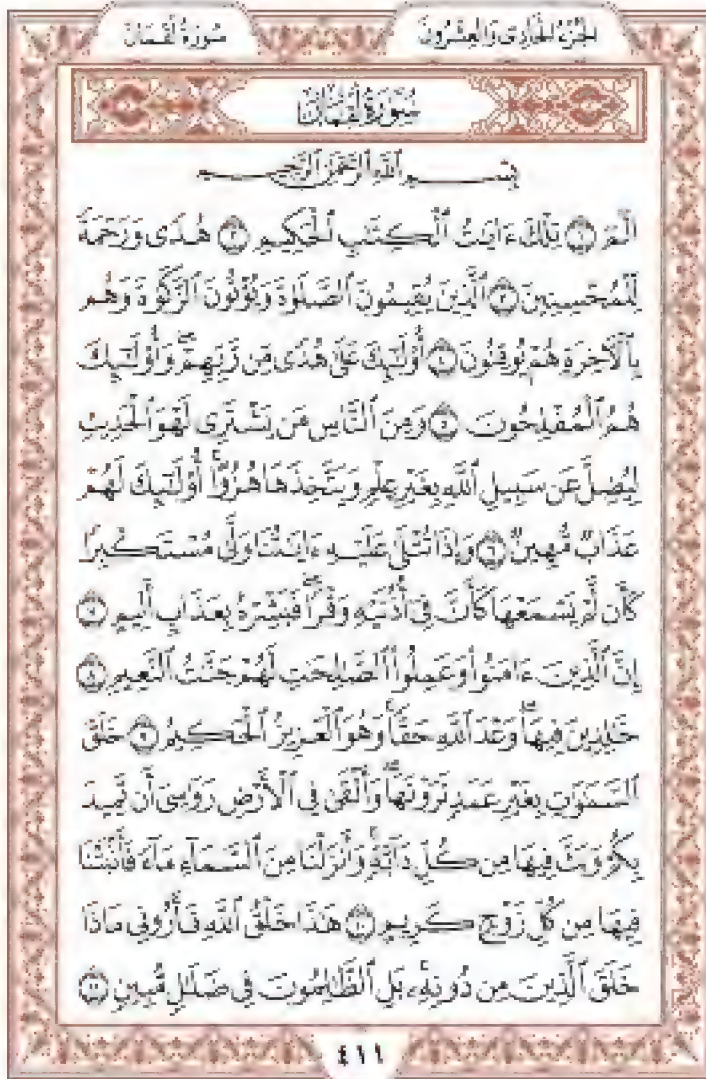 الجُزْءُ الحَادِي وَالعِشْرُونَ سُورَةُ لُقْمَان
سُورَةُ لُقْمَانَ
بِسْمِ ٱللَّهِ ٱلرَّحْمَٰنِ ٱلرَّحِيمِ
الٓمٓ ١ تِلْكَ ءَايَٰتُ ٱلْكِتَٰبِ ٱلْحَكِيمِ ٢ هُدًى وَرَحْمَةً
لِّلْمُحْسِنِينَ ٣ ٱلَّذِينَ يُقِيمُونَ ٱلصَّلَوٰةَ وَيُؤْتُونَ ٱلزَّكَوٰةَ وَهُم
بِٱلْءَاخِرَةِ هُمْ يُوقِنُونَ ٤ أُو۟لَٰٓئِكَ عَلَىٰ هُدًى مِّن رَّبِّهِمْ ۖ وَأُو۟لَٰٓئِكَ
هُمُ ٱلْمُفْلِحُونَ ٥ وَمِنَ ٱلنَّاسِ مَن يَشْتَرِى لَهْوَ ٱلْحَدِيثِ
لِيُضِلَّ عَن سَبِيلِ ٱللَّهِ بِغَيْرِ عِلْمٍ وَيَتَّخِذَهَا هُزُوًا ۚ أُو۟لَٰٓئِكَ لَهُمْ
عَذَابٌ مُّهِينٌ ٦ وَإِذَا تُتْلَىٰ عَلَيْهِ ءَايَٰتُنَا وَلَّىٰ مُسْتَكْبِرًا
كَأَن لَّمْ يَسْمَعْهَا كَأَنَّ فِىٓ أُذُنَيْهِ وَقْرًا ۖ فَبَشِّرْهُ بِعَذَابٍ أَلِيمٍ ٧
إِنَّ ٱلَّذِينَ ءَامَنُوا۟ وَعَمِلُوا۟ ٱلصَّٰلِحَٰتِ لَهُمْ جَنَّٰتُ ٱلنَّعِيمِ ٨
خَٰلِدِينَ فِيهَا ۖ وَعْدَ ٱللَّهِ حَقًّا ۚ وَهُوَ ٱلْعَزِيزُ ٱلْحَكِيمُ ٩ خَلَقَ
ٱلسَّمَٰوَٰتِ بِغَيْرِ عَمَدٍ تَرَوْنَهَا ۖ وَأَلْقَىٰ فِى ٱلْأَرْضِ رَوَٰسِىَ أَن تَمِيدَ
بِكُمْ وَبَثَّ فِيهَا مِن كُلِّ دَآبَّةٍ ۚ وَأَنزَلْنَا مِنَ ٱلسَّمَآءِ مَآءً فَأَنۢبَتْنَا
فِيهَا مِن كُلِّ زَوْجٍ كَرِيمٍ ١٠ هَٰذَا خَلْقُ ٱللَّهِ فَأَرُونِى مَاذَا
خَلَقَ ٱلَّذِينَ مِن دُونِهِۦ ۚ بَلِ ٱلظَّٰلِمُونَ فِى ضَلَٰلٍ مُّبِينٍ ١١
٤١١